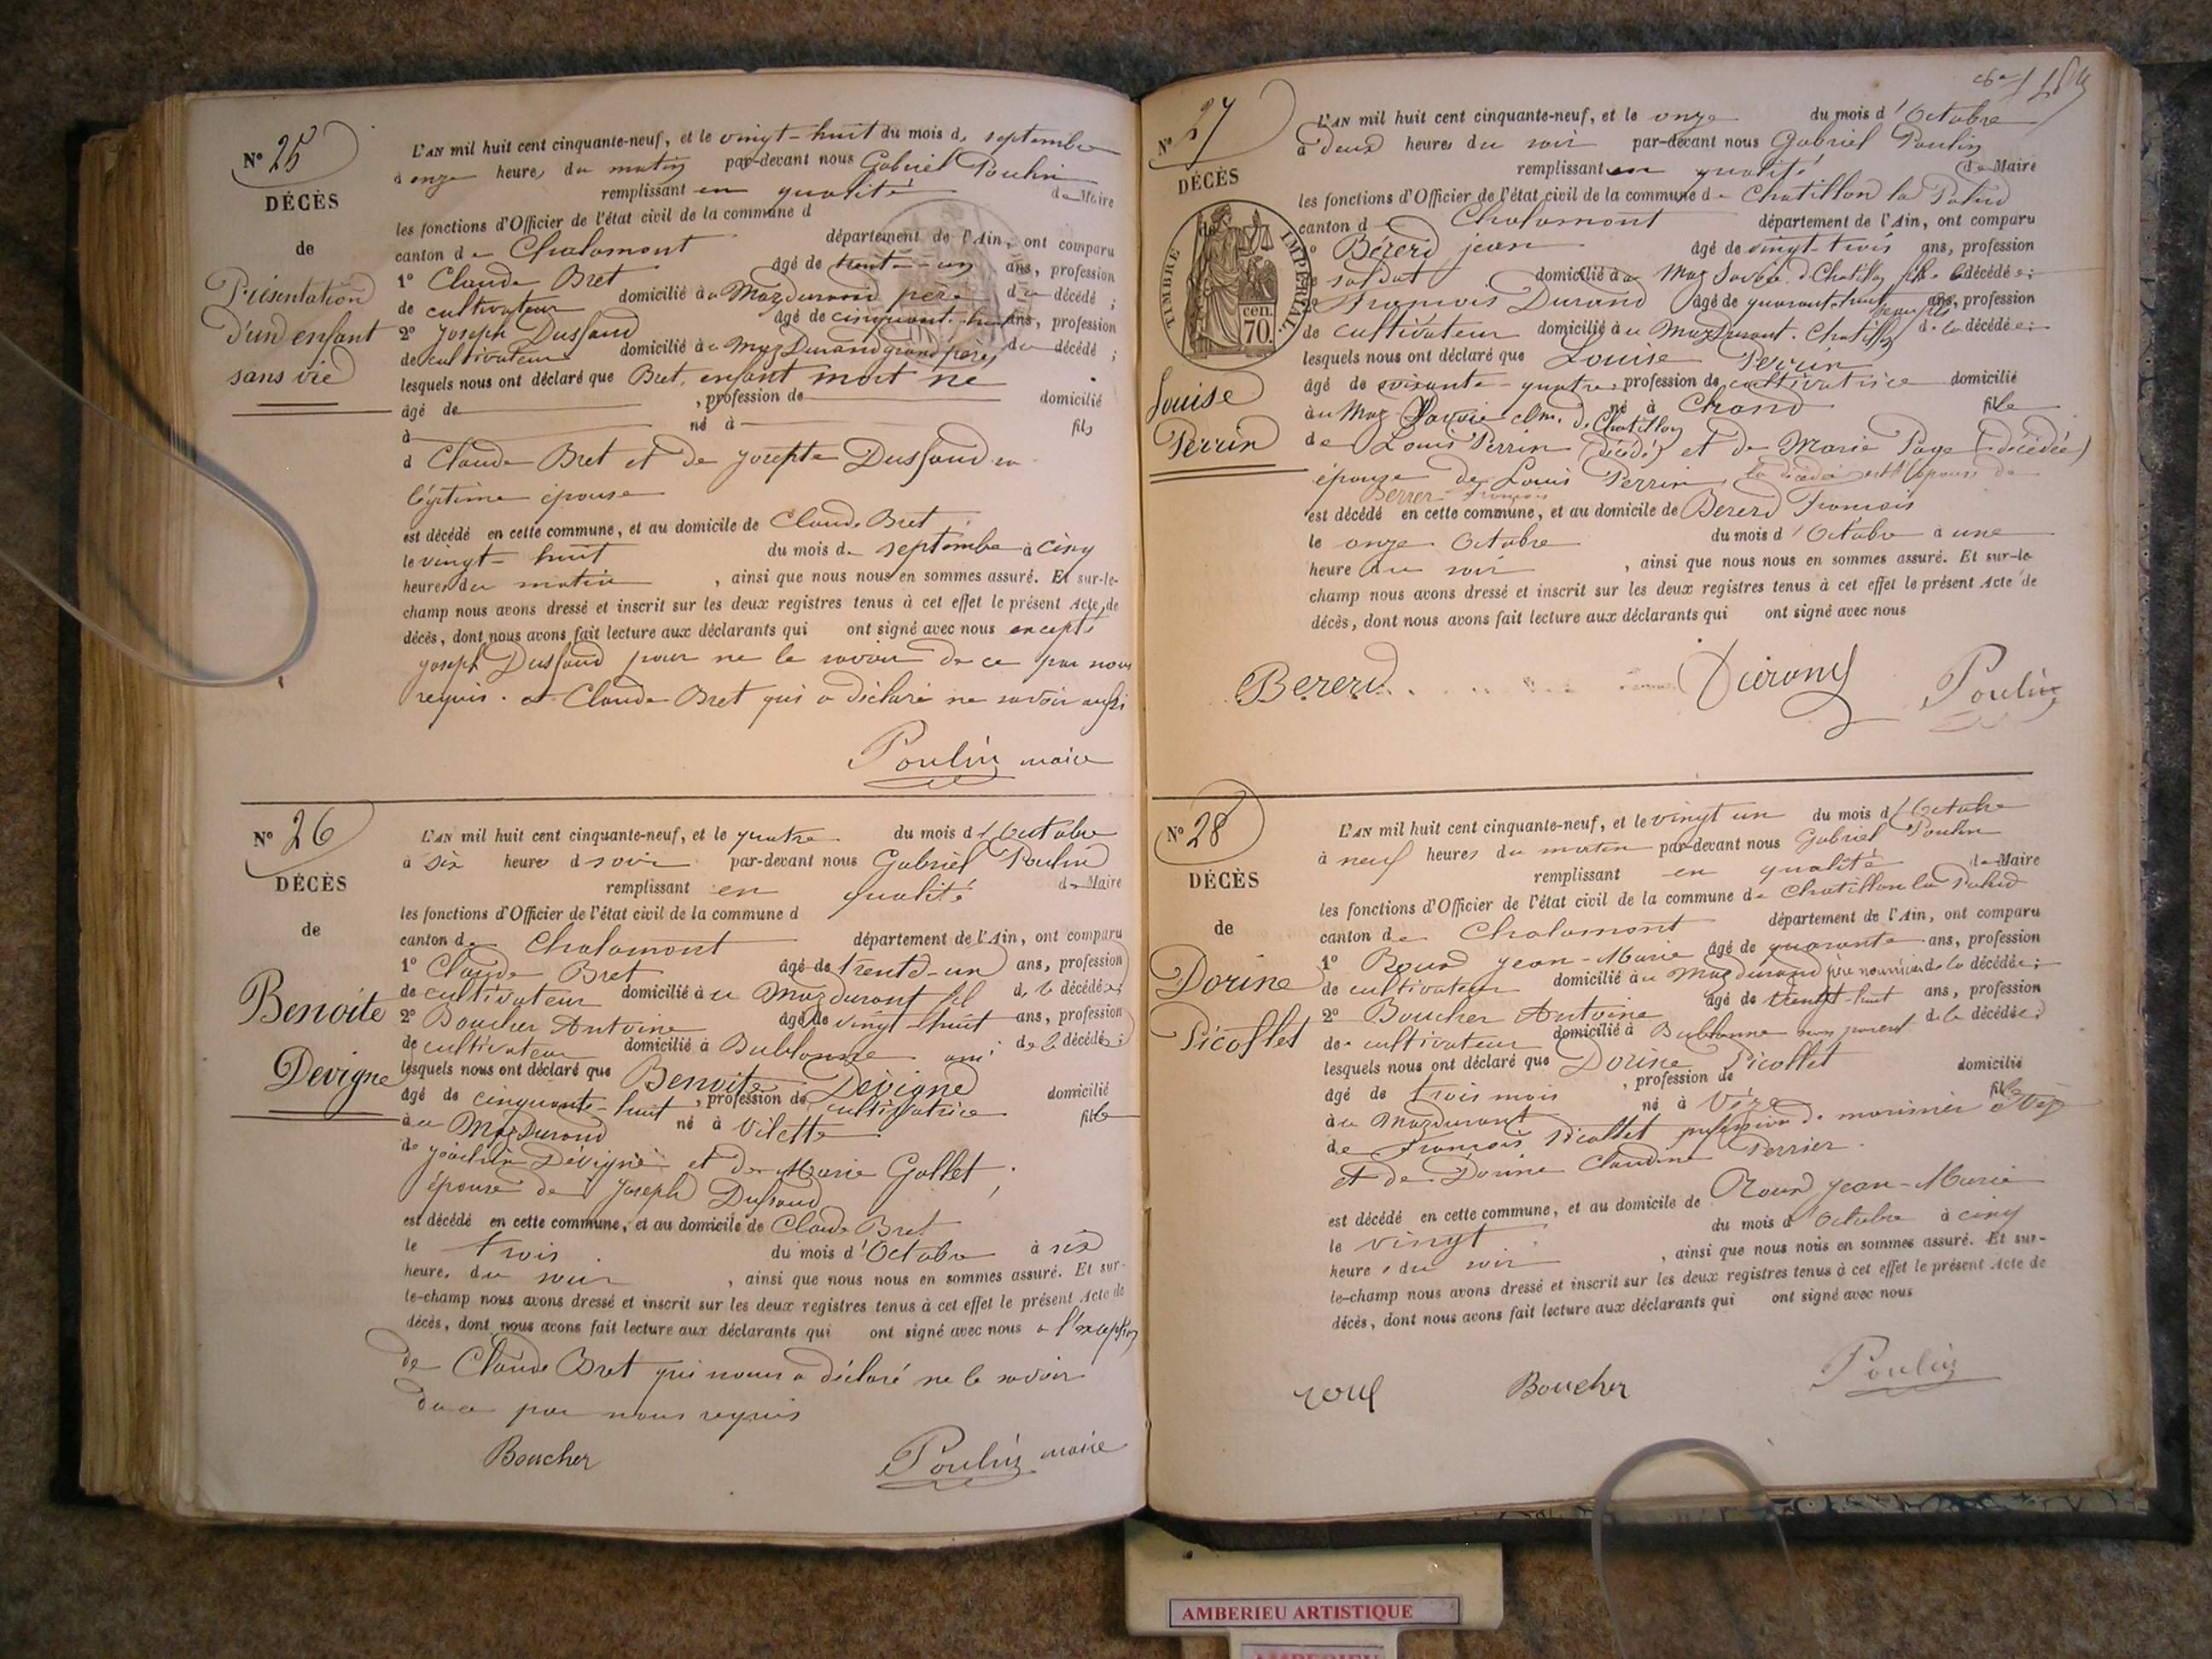 Nº 25
DÉCÈS
de
Présentation
d'un enfant
sans vie
L'AN mil huit cent cinquante-neuf, et le vingt-huit du mois de septembre
à onze heures du matin par-devant nous Gabriel Poulin
remplissant en qualité de Maire
les fonctions d'Officier de l'état civil de la commune d
canton de Chalamont département de l'Ain, ont comparu
1º Claude Bret âgé de trente-un ans, profession
de cultivateur domicilié à u Mazdurand père du décédé ;
2º Joseph Dussaud âgé de cinquante-huit ans, profession
de cultivateur domicilié à u Maz Durand grand père du décédé ;
lesquels nous ont déclaré que Bret, enfant mort né
âgé de , profession de domicilié
à né à fils
d Claude Bret et de Josephte Dussaud sa
légitime épouse
est décédé en cette commune, et au domicile de Claude Bret
le vingt-huit du mois de septembre à cinq
heures du matin , ainsi que nous nous en sommes assuré. Et sur-le-
champ nous avons dressé et inscrit sur les deux registres tenus à cet effet le présent Acte de
décès, dont nous avons fait lecture aux déclarants qui ont signé avec nous excepté
Joseph Dussaud pour ne le savoir de ce par nous
requis. et Claude Bret qui a déclaré ne savoir aussi
Poulin maire
Nº 26
DÉCÈS
de
Benoite
Devigne
L'AN mil huit cent cinquante-neuf, et le quatre du mois d'Octobre
à six heures d soir par-devant nous Gabriel Poulin
remplissant en qualité de Maire
les fonctions d'Officier de l'état civil de la commune d
canton de Chalamont département de l'Ain, ont comparu
1º Claude Bret âgé de trente-un ans, profession
de cultivateur domicilié à u Mazdurant de la décédée;
2º Boucher Antoine âgé de vingt-huit ans, profession
de cultivateur domicilié à Bublanne ami de la décédée;
lesquels nous ont déclaré que Benoite Devigne
âgé de cinquante-huit , profession de cultivatrice domicilié
à u Mazdurand né à Vilette fille
de Joachin Dévigne et de Marie Gallet,
épouse de Joseph Dussaud
est décédé en cette commune, et au domicile de Claude Bret
le trois du mois d'Octobre à six
heures du soir , ainsi que nous nous en sommes assuré. Et sur-
le-champ nous avons dressé et inscrit sur les deux registres tenus à cet effet le présent Acte de
décès, dont nous avons fait lecture aux déclarants qui ont signé avec nous a l'exception
de Claude Bret qui nous a déclaré ne le savoir
de ce par nous requis
Boucher Poulin maire
Nº 27
DÉCÈS
de
TIMBRE IMPÉRIAL
70 cen.
Louise
Perrin
L'AN mil huit cent cinquante-neuf, et le onze du mois d'Octobre
à deux heures du soir par-devant nous Gabriel Poulin
remplissant en qualité de Maire
les fonctions d'Officier de l'état civil de la commune de Chatillon la Palud
canton d Chalamont département de l'Ain, ont comparu
1º Bérerd jean âgé de vingt trois ans, profession
de soldat domicilié à u Maz Savoie d. Chatillon fils de la décédée;
2º François Durand âgé de quarante huit ans, profession
de cultivateur domicilié à u Mazdurant. Chatillon beau fils de la décédée;
lesquels nous ont déclaré que Louise Perrin
âgé de soixante-quatre, profession de cultivatrice domicilié
à u Maz Savoie com. de Chatillon né à Crand fille
de Louis Perrin (décédé) et de Marie Page (décédée)
épouse de Louis Perrin la décédée est l'épouse de
Berrer François
est décédé en cette commune, et au domicile de Bererd François
le onze Octobre du mois d'Octobre à une
heure du soir , ainsi que nous nous en sommes assuré. Et sur-le-
champ nous avons dressé et inscrit sur les deux registres tenus à cet effet le présent Acte de
décès, dont nous avons fait lecture aux déclarants qui ont signé avec nous
Bererd Durand Poulin
Nº 28
DÉCÈS
de
Dorine
Picollet
L'AN mil huit cent cinquante-neuf, et le vingt un du mois d'Octobre
à neuf heures du matin par-devant nous Gabriel Poulin
remplissant en qualité de Maire
les fonctions d'Officier de l'état civil de la commune de Chatillon la Palud
canton de Chalamont département de l'Ain, ont comparu
1º Roux Jean-Marie âgé de quarante ans, profession
de cultivateur domicilié à u Mazdurand père nourricier de la décédée;
2º Boucher Antoine âgé de vingt-huit ans, profession
de cultivateur domicilié à Bublanne non parent de la décédée;
lesquels nous ont déclaré que Dorine Picollet
âgé de trois mois , profession de domicilié
à u Mazdurant né à fille
de François Picollet profession de marinier
et de Dorine Claudine Perrier
est décédé en cette commune, et au domicile de Roux Jean-Marie
le vingt du mois d'Octobre à cinq
heures du soir , ainsi que nous nous en sommes assuré. Et sur-
le-champ nous avons dressé et inscrit sur les deux registres tenus à cet effet le présent Acte de
décès, dont nous avons fait lecture aux déclarants qui ont signé avec nous
Boucher Poulin
AMBERIEU ARTISTIQUE